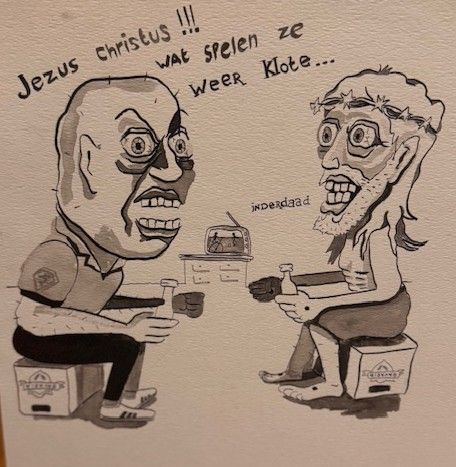 Jezus christus !!!
wat spelen ze
weer klote...
inderdaad